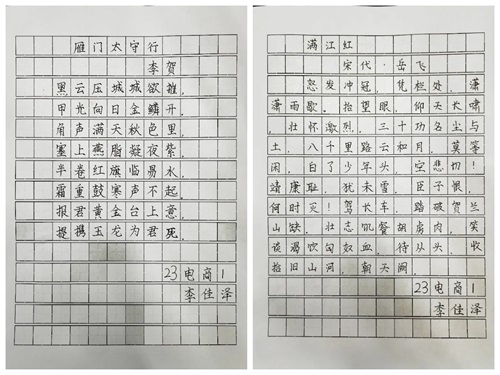 雁门太守行
李贺
黑云压城城欲摧，
甲光向日金鳞开。
角声满天秋色里，
塞上燕脂凝夜紫。
半卷红旗临易水，
霜重鼓寒声不起。
报君黄金台上意，
提携玉龙为君死。
23电商1
李佳泽
满江红
宋代·岳飞
怒发冲冠，凭栏处，潇
潇雨歇。抬望眼，仰天长啸
，壮怀激烈。三十功名尘与
土，八千里路云和月，莫等
闲，白了少年头，空悲切！
靖康耻，犹未雪，臣子恨，
何时灭！驾长车，踏破贺兰
山缺。壮志饥餐胡虏肉，笑
谈渴饮匈奴血。待从头，收
拾旧山河，朝天阙。
23电商1
李佳泽